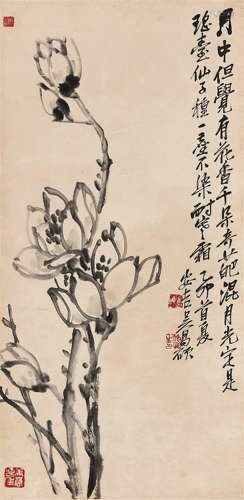 月中但覺有花香千朵奇葩混月光定是
瑤臺仙子種一塵不染耐冬霜乙卯首夏
安吉吳昌碩